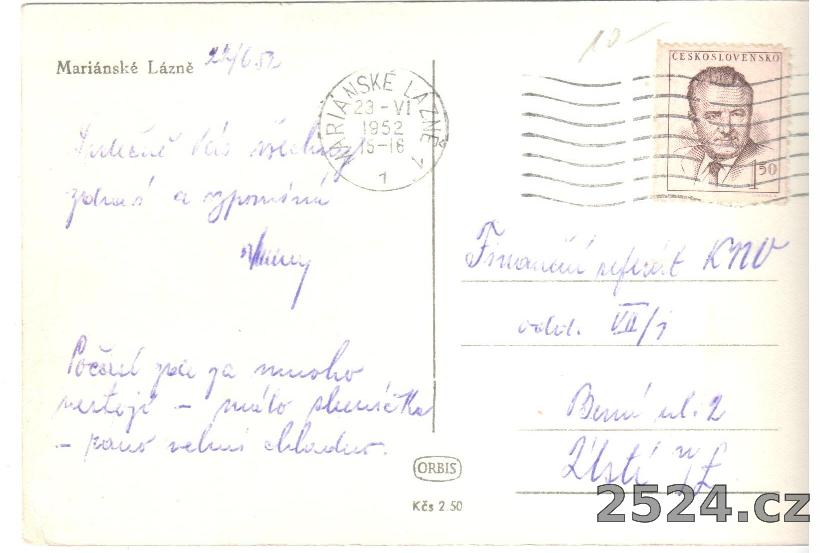 Mariánské Lázně 22/6 52
Srdečně Vás všechny
zdraví a vzpomíná
Počasí zde za mnoho
nestojí – málo sluníčka
– ráno velmi chladno.
MARIÁNSKÉ LÁZNĚ 7
23 -VI
1952
15-16
1
10-
ČESKOSLOVENSKO
1 50
Finanční referát KNV
odd. VII/1
Berní ul. 2
Ústí n/L
ORBIS
Kčs 2.50
2524.cz